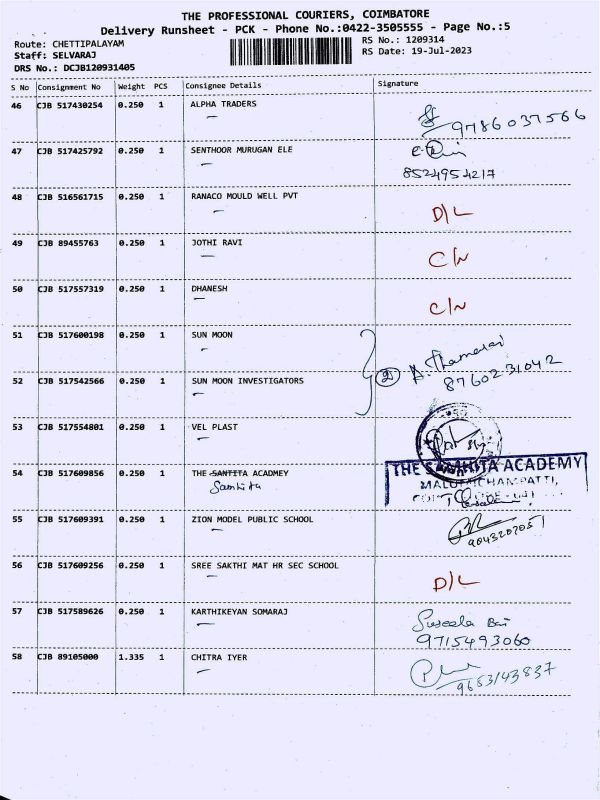 THE PROFESSIONAL COURIERS, COIMBATORE
Delivery Runsheet - PCK - Phone No.:0422-3505555 - Page No.:5
Route: CHETTIPALAYAM RS No.: 1209314
Staff: SELVARAJ RS Date: 19-Jul-2023
DRS No.: DCJB120931405
S No Consignment No Weight PCS Consignee Details Signature
46 CJB 517430254 0.250 1 ALPHA TRADERS
9786037566
47 CJB 517425792 0.250 1 SENTHOOR MURUGAN ELE
8524954217
48 CJB 516561715 0.250 1 RANACO MOULD WELL PVT D/L
49 CJB 89455763 0.250 1 JOTHI RAVI C/N
50 CJB 517557319 0.250 1 DHANESH C/N
51 CJB 517600198 0.250 1 SUN MOON
2 A. Thamarai
8760231042
52 CJB 517542566 0.250 1 SUN MOON INVESTIGATORS
53 CJB 517554801 0.250 1 VEL PLAST
54 CJB 517609856 0.250 1 THE SANTITA ACADMEY THE SAMHITA ACADEMY
Samhita MALUMICHAMPATTI,
55 CJB 517609391 0.250 1 ZION MODEL PUBLIC SCHOOL
9043207051
56 CJB 517609256 0.250 1 SREE SAKTHI MAT HR SEC SCHOOL D/L
57 CJB 517589626 0.250 1 KARTHIKEYAN SOMARAJ Suseela Bai
9715493060
58 CJB 89105000 1.335 1 CHITRA IYER
9683143837